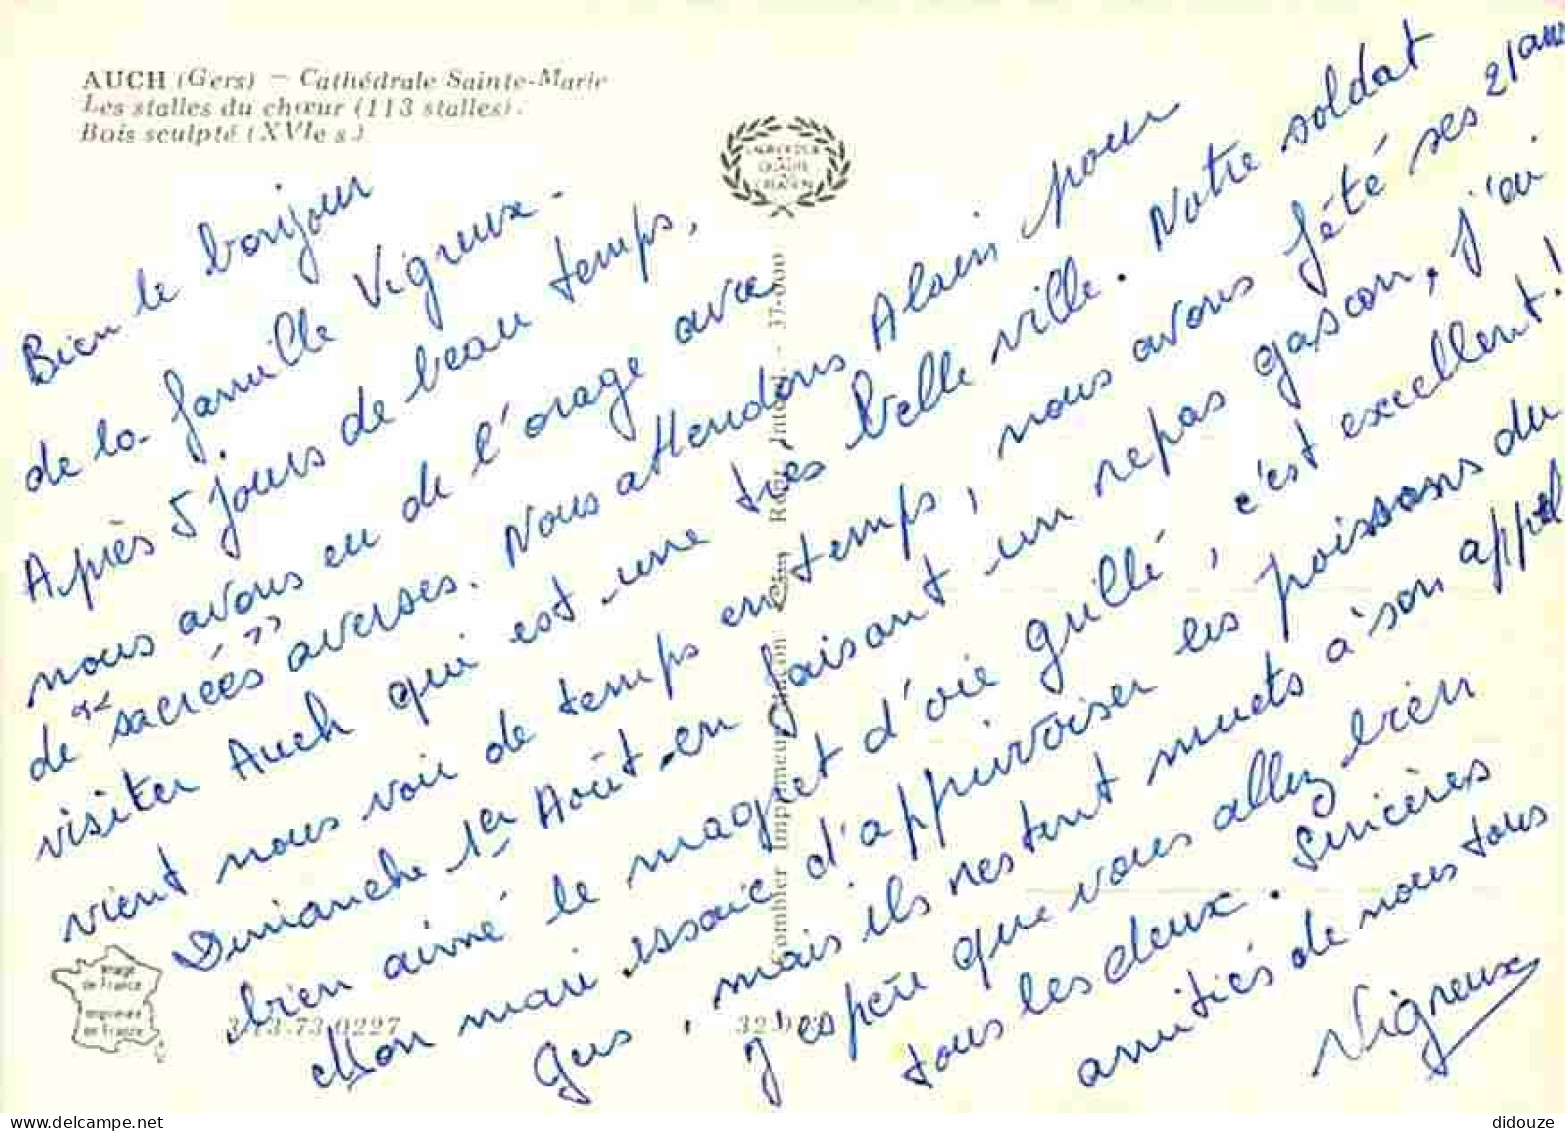 AUCH (Gers) — Cathédrale Sainte-Marie
Les stalles du chœur (113 stalles).
Bois sculpté (XVIe s.)
Bien le bonjour
de la famille Vigreux.
Après 5 jours de beau temps,
nous avons eu de l'orage avec
de "sacrées" averses. Nous attendons Alain pour
visiter Auch qui est une très belle ville. Notre soldat
vient nous voir de temps en temps, nous avons fêté ses 21 ans
Dimanche 1er Août en faisant un repas gascon, j'ai
bien aimé le magret d'oie grillé, c'est excellent!
Mon mari essaie d'apprivoiser les poissons du
Gers, mais ils restent muets à son appel
J'espère que vous allez bien
tous les deux. Sincères
amitiés de nous tous
Vigreux
Combier Imprimeur Mâcon
37-000
image
de France
imprimée
en France
3.13.73.0227
didouze